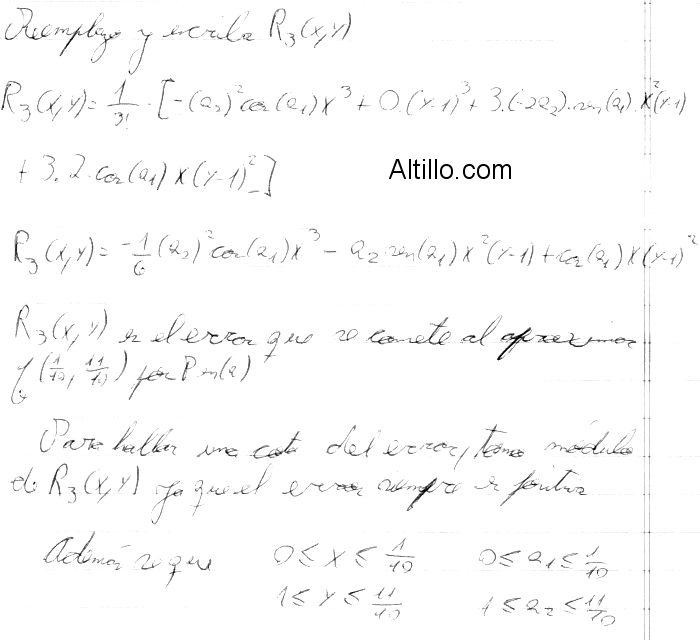 Reemplazo y escribo R₃(x,y)
R₃(x,y) = 1/3! · [-(a₂)² cos(a₁) x³ + 0·(y-1)³ + 3·(-2a₂)·sen(a₁)·x²(y-1)
+ 3·2·cos(a₁) x (y-1)²]
Altillo.com
R₃(x,y) = -1/6 (a₂)² cos(a₁) x³ - a₂ sen(a₁) x² (y-1) + cos(a₁) x (y-1)²
R₃(x,y) es el error que se comete al aproximar
(1/10, 11/10) por P en (a)
Para hallar una cota del error, tomo módulo
de R₃(x,y) ya que el error siempre es positivo
Además se que 0 ≤ x ≤ 1/10 0 ≤ a₁ ≤ 1/10
1 ≤ y ≤ 11/10 1 ≤ a₂ ≤ 11/10